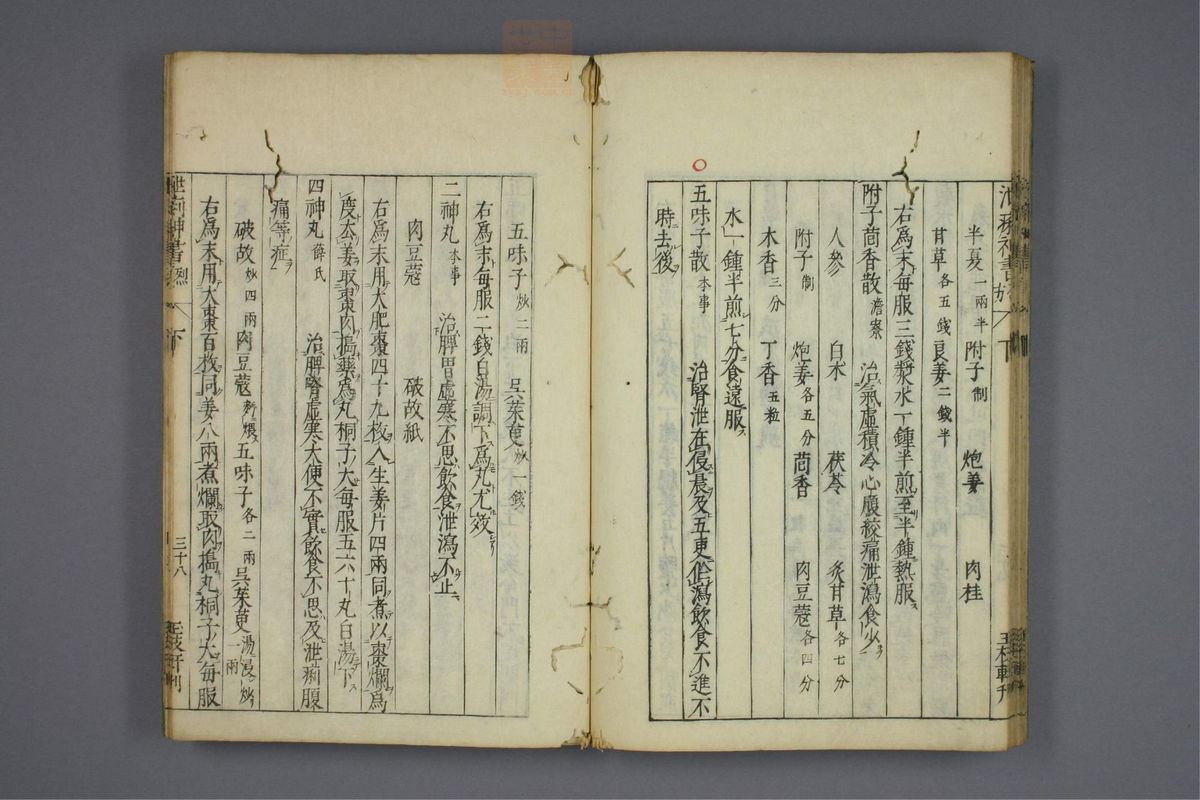 半夏一兩半　附子制　炮姜　肉桂
甘草各五錢　良姜二錢半
右爲末每服三錢漿水一鍾半煎至半鍾熱服
附子茴香散澹寮　治氣虛積冷心腹絞痛泄瀉食少
人參　白朮　茯苓　炙甘草各七分
附子制　炮姜各五分　茴香　肉豆蔻各四分
木香三分　丁香五粒
水一鍾半煎七分食遠服
五味子散本事　治腎泄在侵晨及五更作瀉飲食不進不
時去後
五味子炒二兩　吳茱萸炒一錢
右爲末每服二錢白湯調下爲丸尤效
二神丸本事　治脾胃虛寒不思飲食泄瀉不止
肉豆蔻　破故紙
右爲末用大肥棗四十九枚入生姜片四兩同煮以棗爛爲
度去姜取棗肉搗藥爲丸桐子大每服五六十丸白湯下
四神丸薛氏　治脾腎虛寒大便不實飲食不思及泄痢腹
痛等症
破故炒四兩　肉豆蔻麪煨　五味子各二兩　吳茱萸湯浸炒一兩
右爲末用大棗百枚同姜八兩煮爛取肉搗丸桐子大每服
三十八